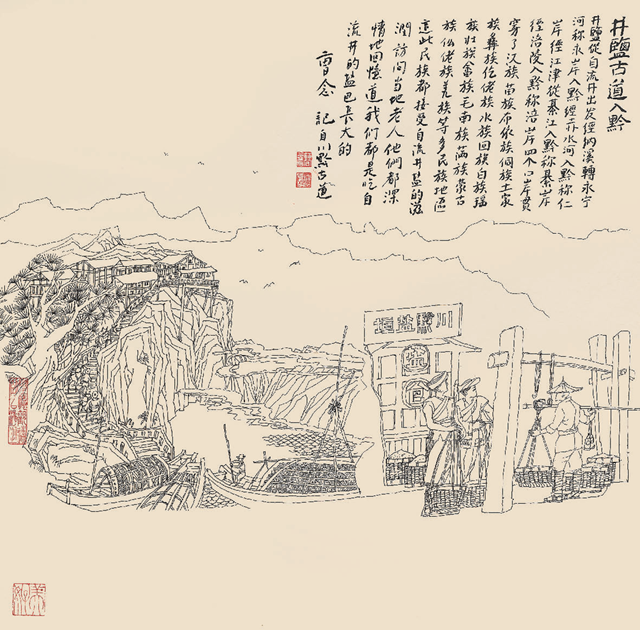 井鹽古道入黔
井鹽從自流井出发经納溪轉永宁
河称永岸入黔經赤水河入黔称仁
岸經江津從綦江入黔称綦岸
径涪陵入黔称涪岸四个口岸貫
穿了汉族苗族布依族侗族土家
族彝族仡佬族水族回族白族瑶
族壮族畲族毛南族满族蒙古
族仫佬族羌族等多民族地區
這些民族都接受自流井盐的滋
潤訪问当地老人他們都深
情地回憶道我们都是吃自
流井的盐巴長大的
曾念 記自川黔古道
川黔盐